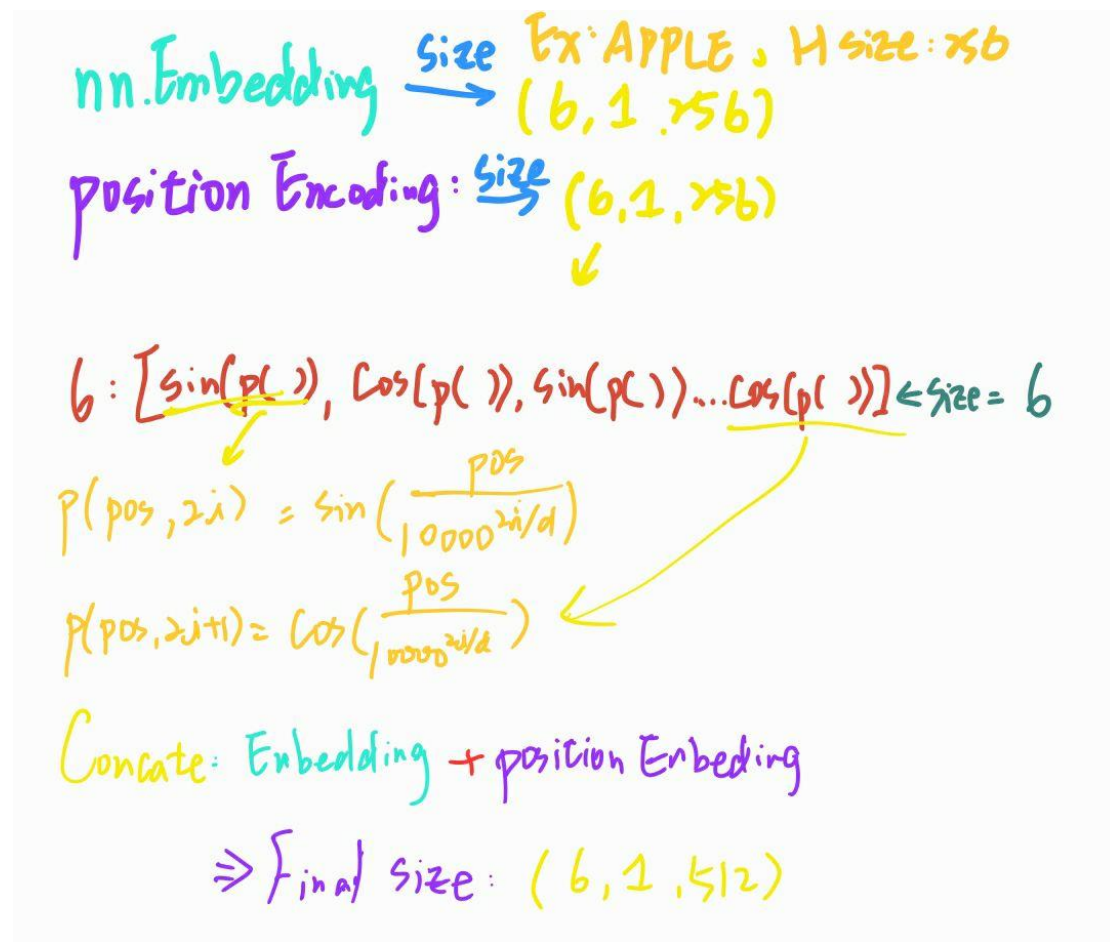 nn.Embedding size Ex: APPLE, H size: 256
(6, 1, 256)
position Encoding: size (6, 1, 256)
6: [sin(p( )), Cos(p( )), sin(p( )) .... Cos(p( ))] ← size = 6
P(pos, 2i) = sin(pos/10000^2i/d)
P(pos, 2i+1) = Cos(pos/10000^2i/d)
Concate: Enbedding + position Enbeding
⇒ Final size: (6, 1, 512)